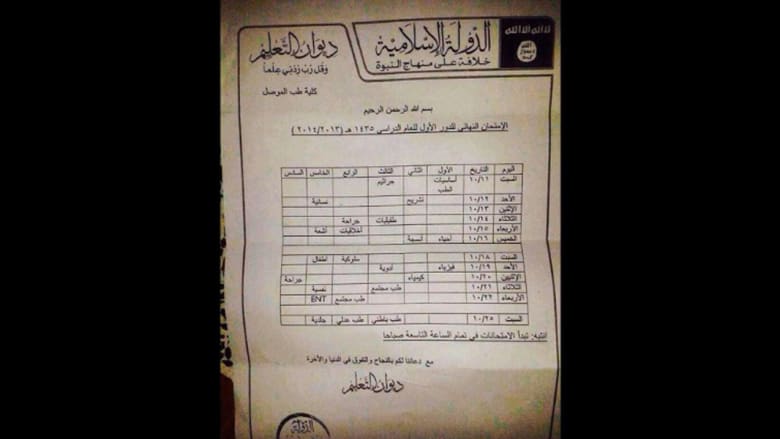 لا اله الا الله
الله
رسول
محمد
الدولة الإسلامية
خلافة على منهاج النبوة
ديوان التعليم
وقل رب زدني علماً
كلية طب الموصل
بسم الله الرحمن الرحيم
الإمتحان النهائي للدور الأول للعام الدراسي ١٤٣٥ هـ (٢٠١٤/٢٠١٣)
اليوم التاريخ الأول الثاني الثالث الرابع الخامس السادس
السبت ١٠/١١ أساسيات الطب جراثيم
الأحد ١٠/١٢ تشريح نسائية
الإثنين ١٠/١٣
الثلاثاء ١٠/١٤ طفيليات جراحة
الأربعاء ١٠/١٥ أخلاقيات أشعة
الخميس ١٠/١٦ أحياء أنسجة
السبت ١٠/١٨ سلوكية اطفال
الأحد ١٠/١٩ فيزياء أدوية
الإثنين ١٠/٢٠ كيمياء جراحة
الثلاثاء ١٠/٢١ طب مجتمع نفسية
الأربعاء ١٠/٢٢ طب مجتمع ENT
السبت ١٠/٢٥ طب باطني طب عدلي جلدية
انتبه: تبدأ الامتحانات في تمام الساعة التاسعة صباحا
مع دعائنا لكم بالنجاح والتفوق في الدنيا والآخرة
ديوان التعليم
الدولة